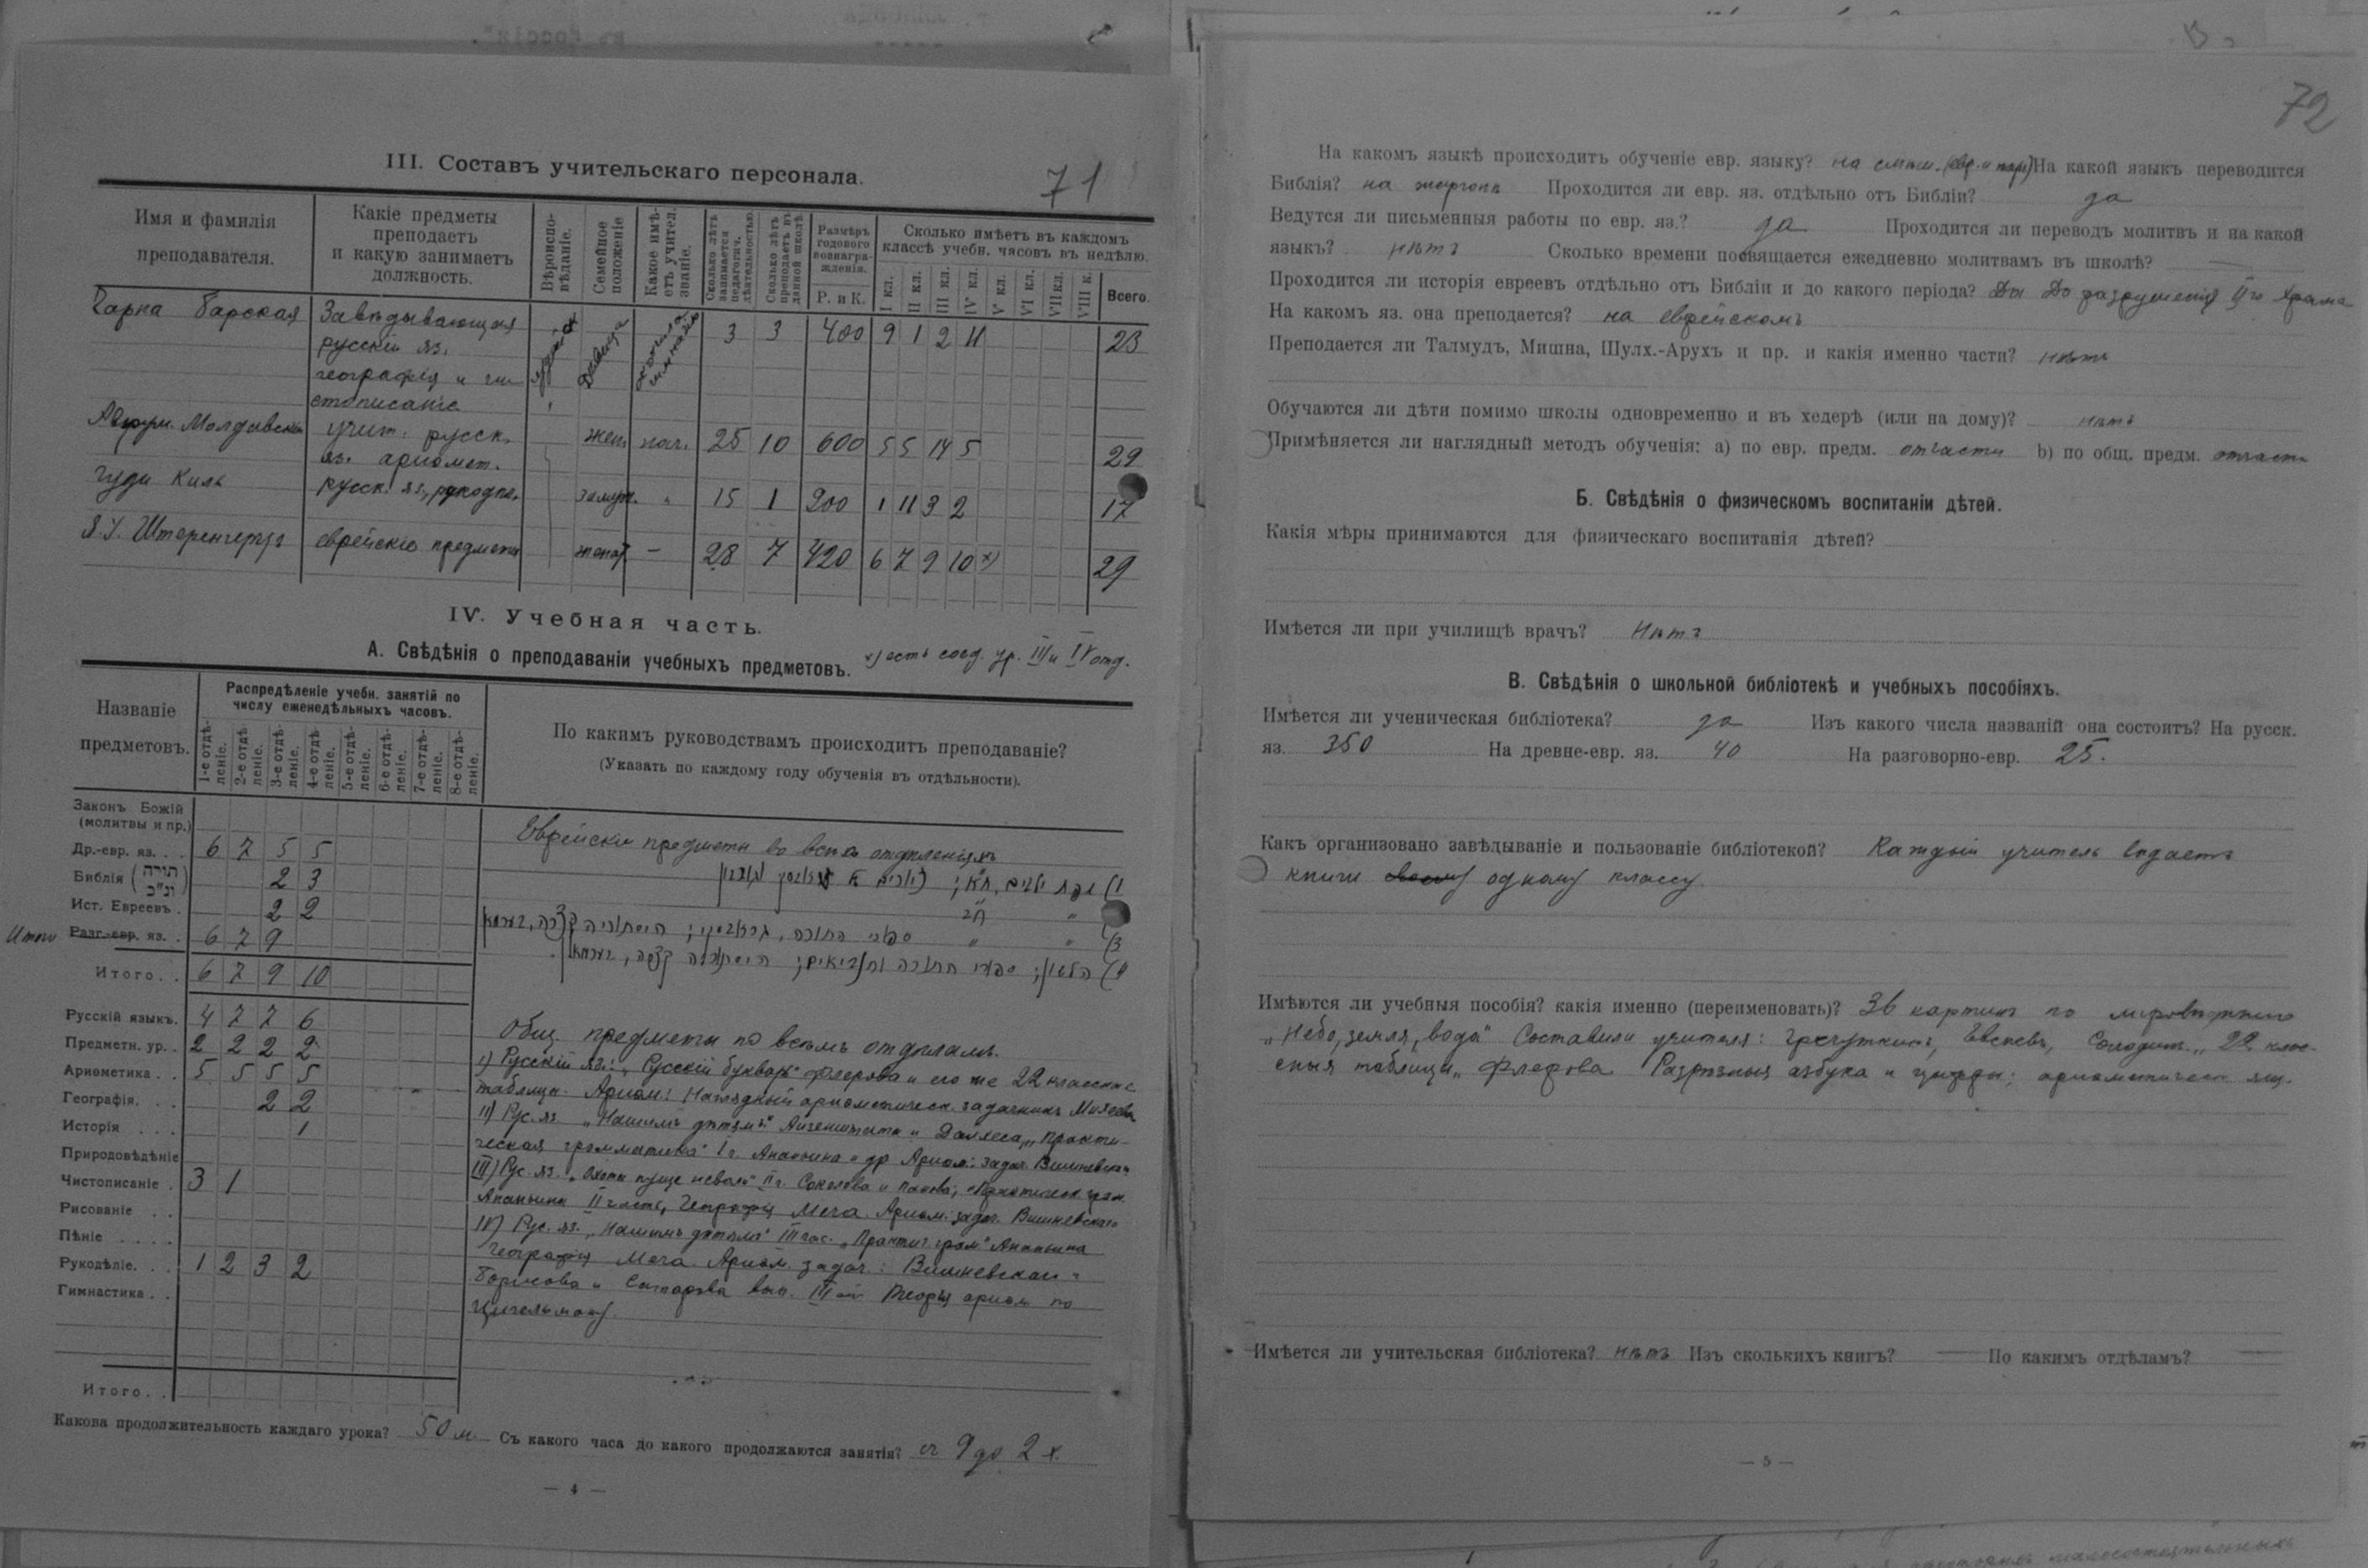 III. Составъ учительскаго персонала.
71
Имя и фамилія преподавателя.
Какіе предметы преподаетъ и какую занимаетъ должность.
Вѣроиспо-вѣданіе.
Семейное положеніе
Какое имѣ-етъ учител. званіе.
Сколько лѣтъ занимается педагогич. дѣятельностью.
Сколько лѣтъ преподаетъ въ данной школѣ
Размѣръ годового вознагра-жденія.
Р. и К.
Сколько имѣетъ въ каждомъ классѣ учебн. часовъ въ недѣлю.
I кл. II кл. III кл. IV кл. V кл. VI кл. VII кл. VIII к. Всего.
Чарна Барская Завѣдывающая 3 3 400 9 1 2 11 23
русскій яз. дѣвица
географія и чи
стописаніе
Молдавскій учит. русск. жен. нач. 25 10 600 5 5 14 5 29
яз. ариѳмет.
Киль русск. яз., рукодѣл. замуж. " 15 1 200 1 11 3 2 17
Штеренгерцъ еврейскіе предметы женат — 28 7 420 6 7 9 10 х) 29
IV. Учебная часть.
А. Свѣдѣнія о преподаваніи учебныхъ предметовъ. х) есть соед. ур. III и IV отд.
Названіе предметовъ.
Распредѣленіе учебн. занятій по числу еженедѣльныхъ часовъ.
1-е отдѣ-леніе. 2-е отдѣ леніе. 3-е отдѣ-леніе. 4-е отдѣ леніе. 5-е отдѣ-леніе. 6-е отдѣ-леніе. 7-е отдѣ-леніе. 8-е отдѣ-леніе.
По какимъ руководствамъ происходитъ преподаваніе?
(Указать по каждому году обученія въ отдѣльности).
Законъ Божій
(молитвы и пр.)
Еврейскіе предметы во всѣхъ отдѣленіяхъ
Др.-евр. яз. . . 6 7 5 5
Библія (תורה ונ"כ) 2 3
Ист. Евреевъ . 2 2
Итого Разг.-евр. яз. . 6 7 9
Итого. . 6 7 9 10
Русскій языкъ. 4 7 7 6
Общ. предметы по всѣмъ отдѣламъ.
Предметн. ур. . 2 2 2 2
I) Русскій яз.: „Русскій букварь" Флерова и его же 22 классныс
Ариѳметика . . 5 5 5 5
таблицы. Ариѳм: Наглядный ариѳметическ. задачникъ
Географія. . . 2 2
II) Рус. яз „Нашимъ дѣтямъ" Айзенштата и „Практи-
Исторія . . . 1
ческая грамматика" I г. Ананьина и др Ариѳм: задач. Вишневскаго
Природовѣдѣніе
III) Рус. яз. „Охота пуще неволи" II г. Соколова и „Практическ грам.
Чистописаніе . 3 1
Ананьина II часть, Географія Меча. Ариѳм. задач. Вишневскаго
Рисованіе . .
IV) Рус. яз. „Нашимъ дѣтямъ" III час. „Практич. грам" Ананьина
Пѣніе . . . .
Географія Меча. Ариѳм. задач.: Вишневскаго и
Рукодѣліе. . . 1 2 3 2
и Сатарова вып. III-ій Теорія ариѳм по
Гимнастика . .
Цигельману.
Итого. .
Какова продолжительность каждаго урока? 50 м. Съ какого часа до какого продолжаются занятія? съ 9 до 2 х.
— 4 —
72
На какомъ языкѣ происходитъ обученіе евр. языку? на смѣш. На какой языкъ переводится
Библія? на жаргонъ Проходится ли евр. яз. отдѣльно отъ Библіи? да
Ведутся ли письменныя работы по евр. яз.? да Проходится ли переводъ молитвъ и на какой
языкъ? нѣтъ Сколько времени посвящается ежедневно молитвамъ въ школѣ? —
Проходится ли исторія евреевъ отдѣльно отъ Библіи и до какого періода? Да До разрушенія II-го Храма
На какомъ яз. она преподается? на еврейскомъ
Преподается ли Талмудъ, Мишна, Шулх.-Арухъ и пр. и какія именно части? нѣтъ
Обучаются ли дѣти помимо школы одновременно и въ хедерѣ (или на дому)? нѣтъ
Примѣняется ли наглядный методъ обученія: а) по евр. предм. отчасти b) по общ. предм. отчасти
Б. Свѣдѣнія о физическомъ воспитаніи дѣтей.
Какія мѣры принимаются для физическаго воспитанія дѣтей?
Имѣется ли при училищѣ врачъ? Нѣтъ
В. Свѣдѣнія о школьной библіотекѣ и учебныхъ пособіяхъ.
Имѣется ли ученическая библіотека? да Изъ какого числа названій она состоитъ? На русск.
яз. 350 На древне-евр. яз. 40 На разговорно-евр. 25.
Какъ организовано завѣдываніе и пользованіе библіотекой? Каждый учитель выдаетъ
книги одному классу.
Имѣются ли учебныя пособія? какія именно (переименовать)? 36 картинъ по міровѣдѣнію
„Небо, земля, вода" Составили учителя: „22 клас-
сныя таблицы" Флерова Разрѣзныя азбука и цифры; ариѳметическ. ящ.
Имѣется ли учительская библіотека? нѣтъ Изъ сколькихъ книгъ? — По какимъ отдѣламъ? —
— 5 —